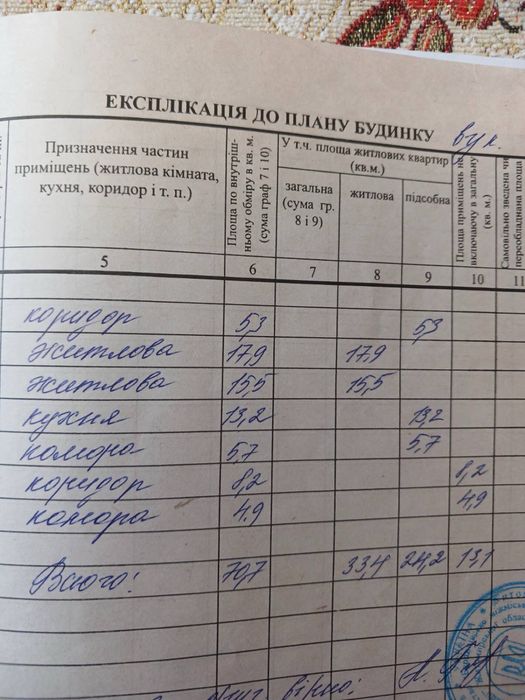 ЕКСПЛІКАЦІЯ ДО ПЛАНУ БУДИНКУ вул.
Призначення частин приміщень (житлова кімната, кухня, коридор і т. п.)
Площа по внутріш-ньому обміру в кв. м. (сума граф 7 і 10)
У т.ч. площа житлових квартир (кв.м.)
загальна (сума гр. 8 і 9)
житлова
підсобна
Площа приміщень не включаючу в загальну (кв. м)
Самовільно зведена чи переобладнана площа
5 6 7 8 9 10 11
коридор 5,3 5,3
житлова 17,9 17,9
житлова 15,5 15,5
кухня 13,2 13,2
комора 5,7 5,7
коридор 8,2 8,2
комора 4.9 4,9
Всього: 70,7 33,4 24,2 13,1
вірно: